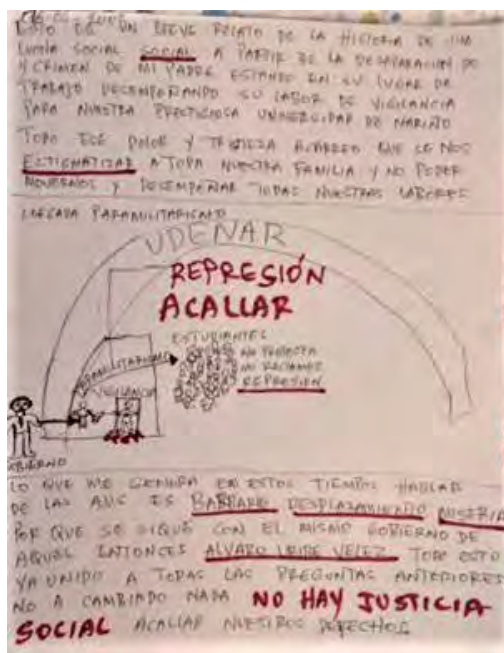 ESTO ES UN BREVE RELATO DE LA HISTORIA DE UNA
LUCHA SOCIAL SOCIAL A PARTIR DE LA DESAPARACION DE
Y CRIMEN DE MI PADRE ESTANDO EN SU LUGAR DE
TRABAJO DESEMPEÑANDO SU LABOR DE VIGILANCIA
PARA NUESTRA PRESTIGIOSA UNIVERSIDAD DE NARIÑO
TODO ESE DOLOR Y TRISTEZA ACARREO QUE SE NOS
ESTIGMATIZAR A TODA NUESTRA FAMILIA Y NO PODER
MOVERNOS Y DESEMPEÑAR TODAS NUESTRAS LABORES
LLEGADA PARAMILITARISMO
UDENAR
REPRESIÓN
ACALLAR
ESTUDIANTES
PARAMILITARISMO
NO PROTESTA
NO RECLAMOS
REPRESION
VIGILANCIA
GOBIERNO
LO QUE ME GENERA EN ESTOS TIEMPOS HABLAR
DE LAS AUC ES BARBARIE DESPLAZAMIENTO MISERIA
POR QUE SE SIGUE CON EL MISMO GOBIERNO DE
AQUEL ENTONCES ALVARO URIBE VELEZ TODO ESTO
YA UNIDO A TODAS LAS PREGUNTAS ANTERIORES
NO A CAMBIADO NADA NO HAY JUSTICIA
SOCIAL ACALLAR NUESTROS DERECHOS